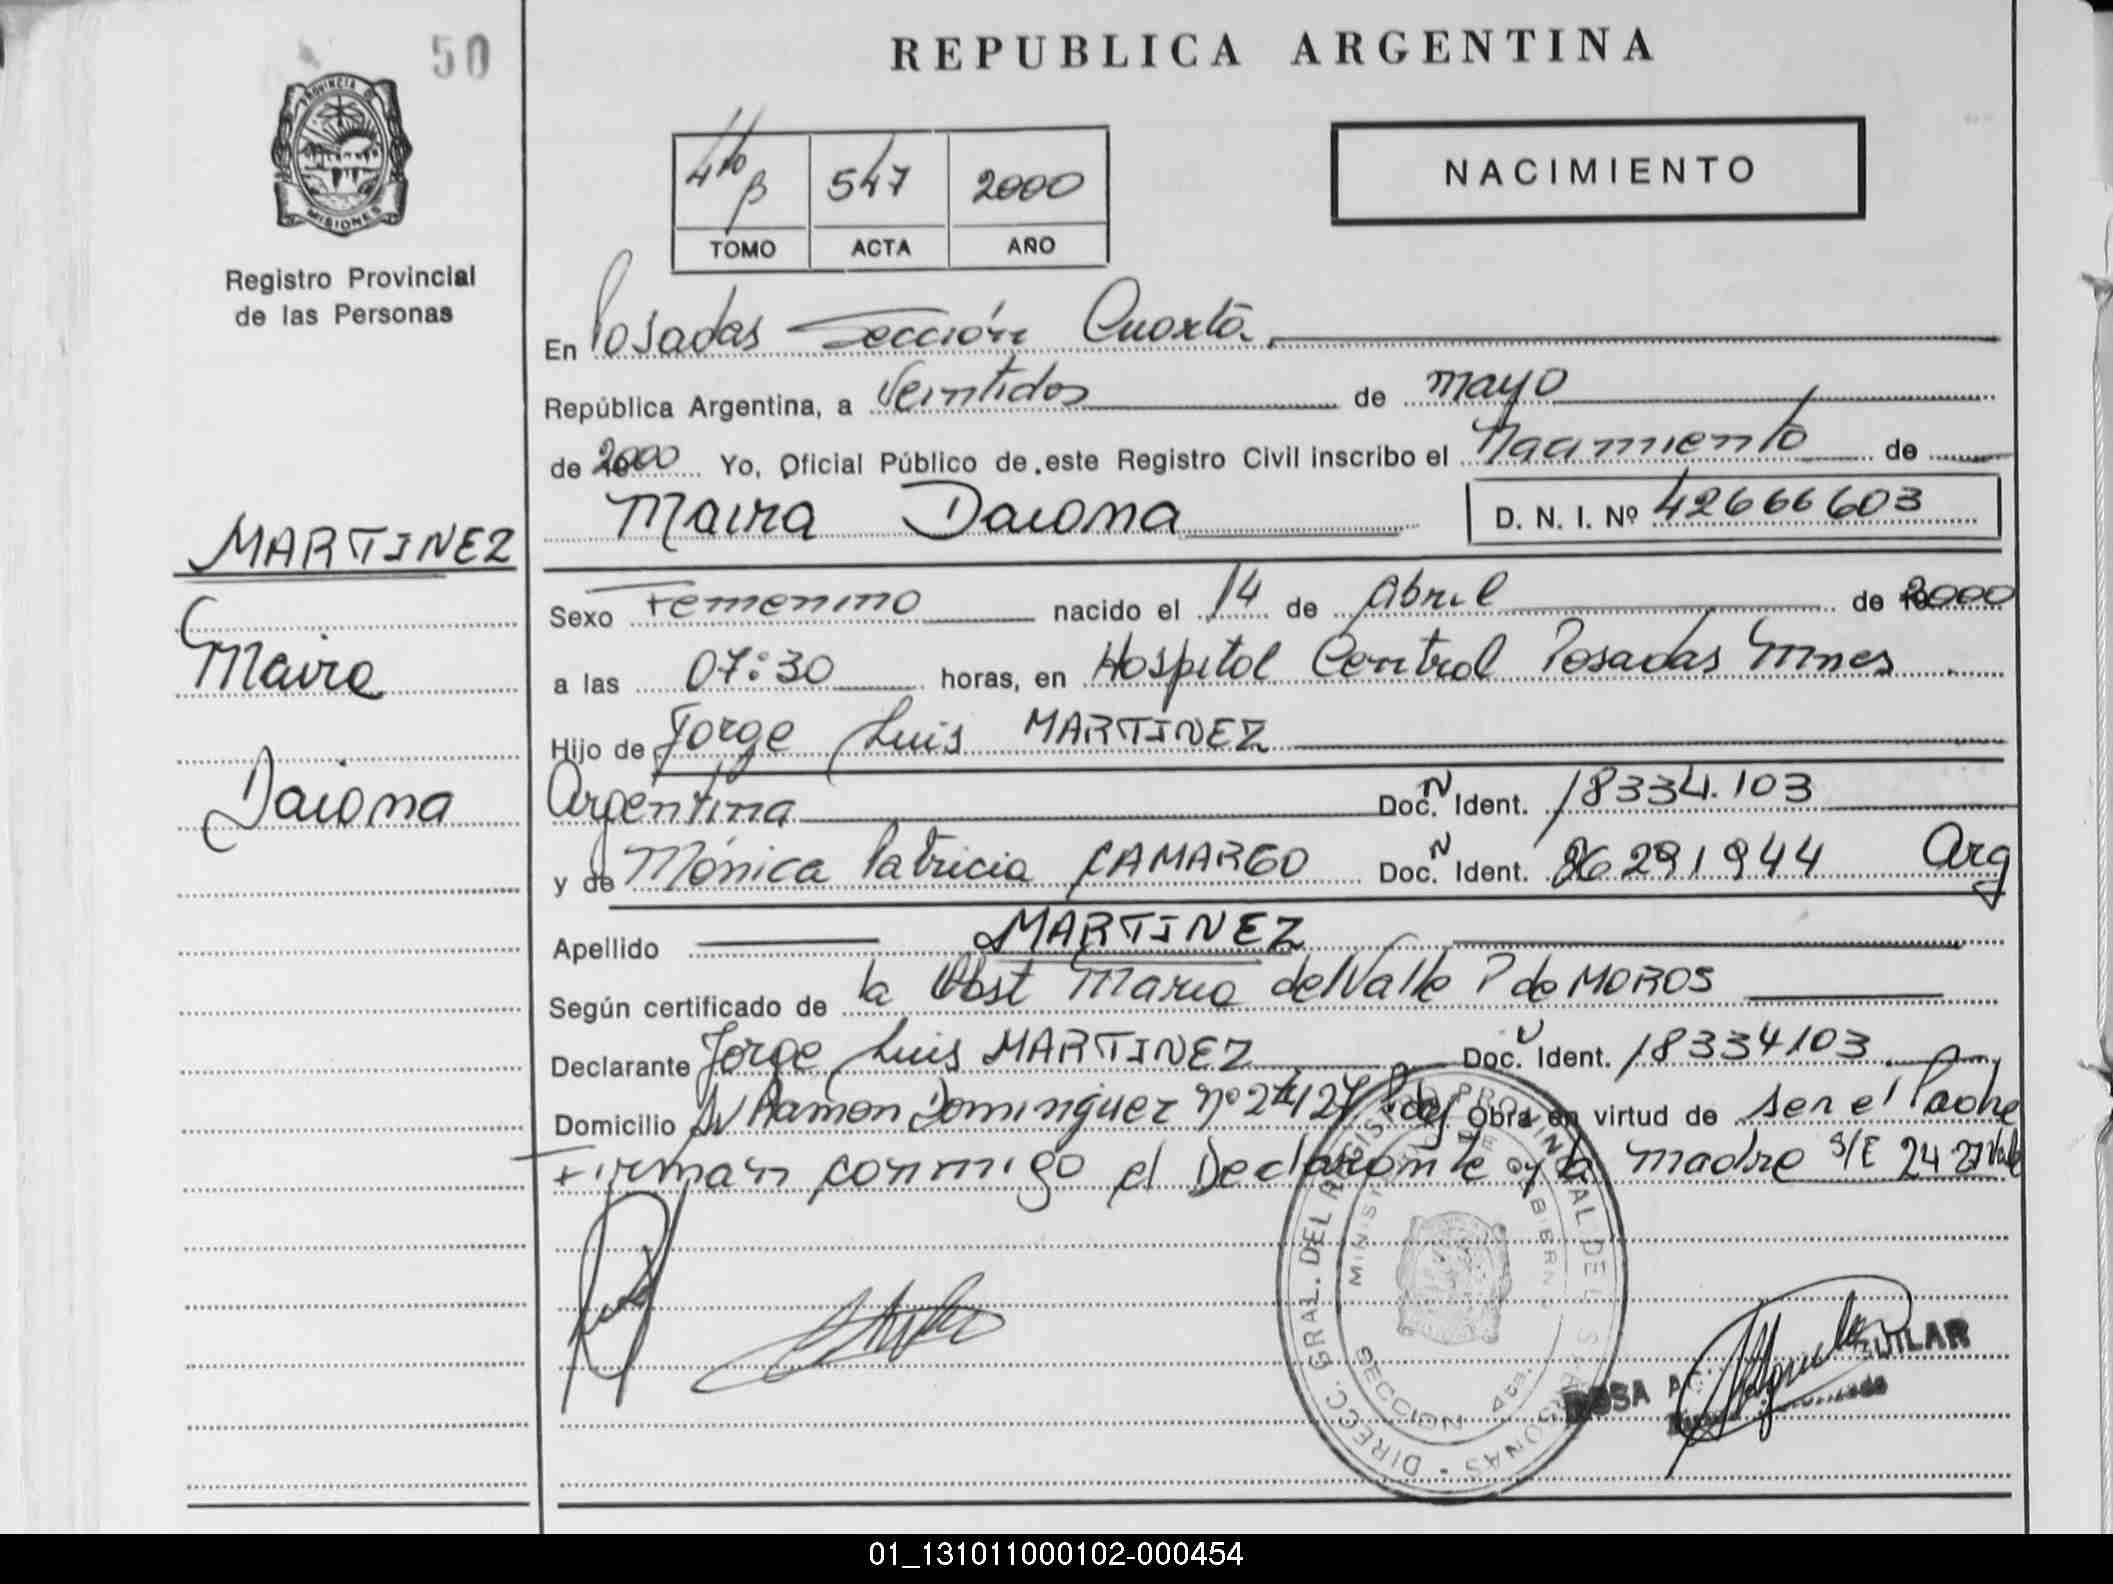 50
REPUBLICA ARGENTINA
PROVINCIA DE
MISIONES
Registro Provincial
de las Personas
4to B 547 2000
TOMO ACTA AÑO
NACIMIENTO
En Posadas Sección Cuarta
República Argentina, a Veintidos de mayo
de 2000 Yo, Oficial Público de este Registro Civil inscribo el Nacimiento de
Maira Daiana D. N. I. Nº 42666603
MARTINEZ
Maira
Daiana
Sexo Femenino nacido el 14 de Abril de 2000
a las 07:30 horas, en Hospital Central Posadas Mnes
Hijo de Jorge Luis MARTINEZ
Argentina Doc. N Ident. 18334.103
y de Mónica Patricia CAMARGO Doc. N Ident. 26291944 Arg
Apellido MARTINEZ
Según certificado de la Obst Maria del Valle P de MOROS
Declarante Jorge Luis MARTINEZ Doc. Ident. 18334103
Domicilio Av Ramon Dominguez nº Pdas Obra en virtud de ser el Padre
Firman conmigo el Declarante y la madre S/E 24 27 Vale
DIRECC. GRAL. DEL REGISTRO PROVINCIAL DE LAS PERSONAS
MINISTERIO DE GOBIERNO
SECCION 4ta.
ROSA AGUILAR
01_131011000102-000454